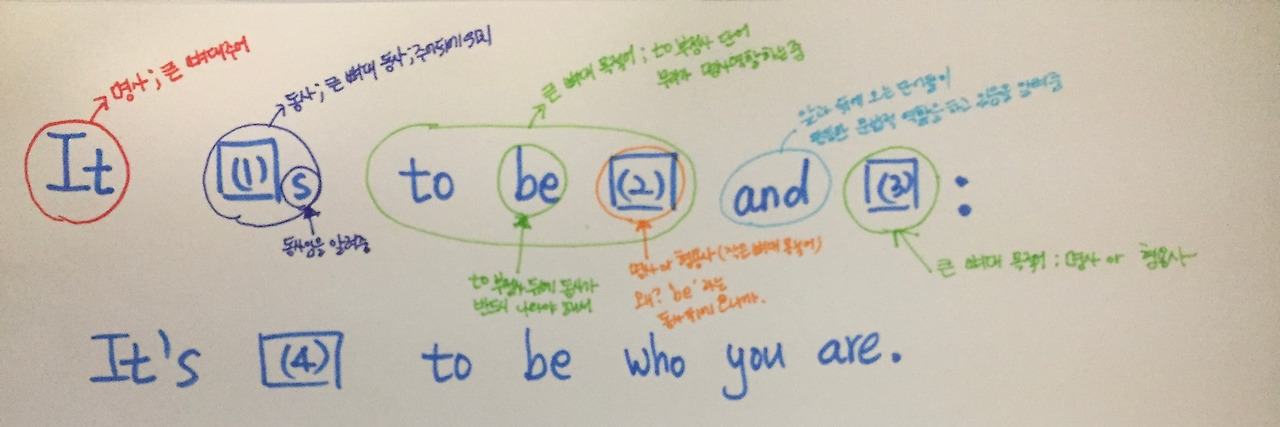 명사; 큰 뼈대주어
동사; 큰 뼈대 동사;
큰 뼈대 목적어; to부정사 단어
명사역할하는중
앞과 뒤에 오는 단어들이
It (1) s to be (2) and (3) :
동사임을 알려줌
to부정사 뒤에 동사가
반드시 나와야 돼서
명사 or 형용사 (작은 뼈대 목적어)
왜? 'be'라는
동사뒤에 오니까.
큰 뼈대 목적어 : 명사 or 형용사
It's (4) to be who you are.